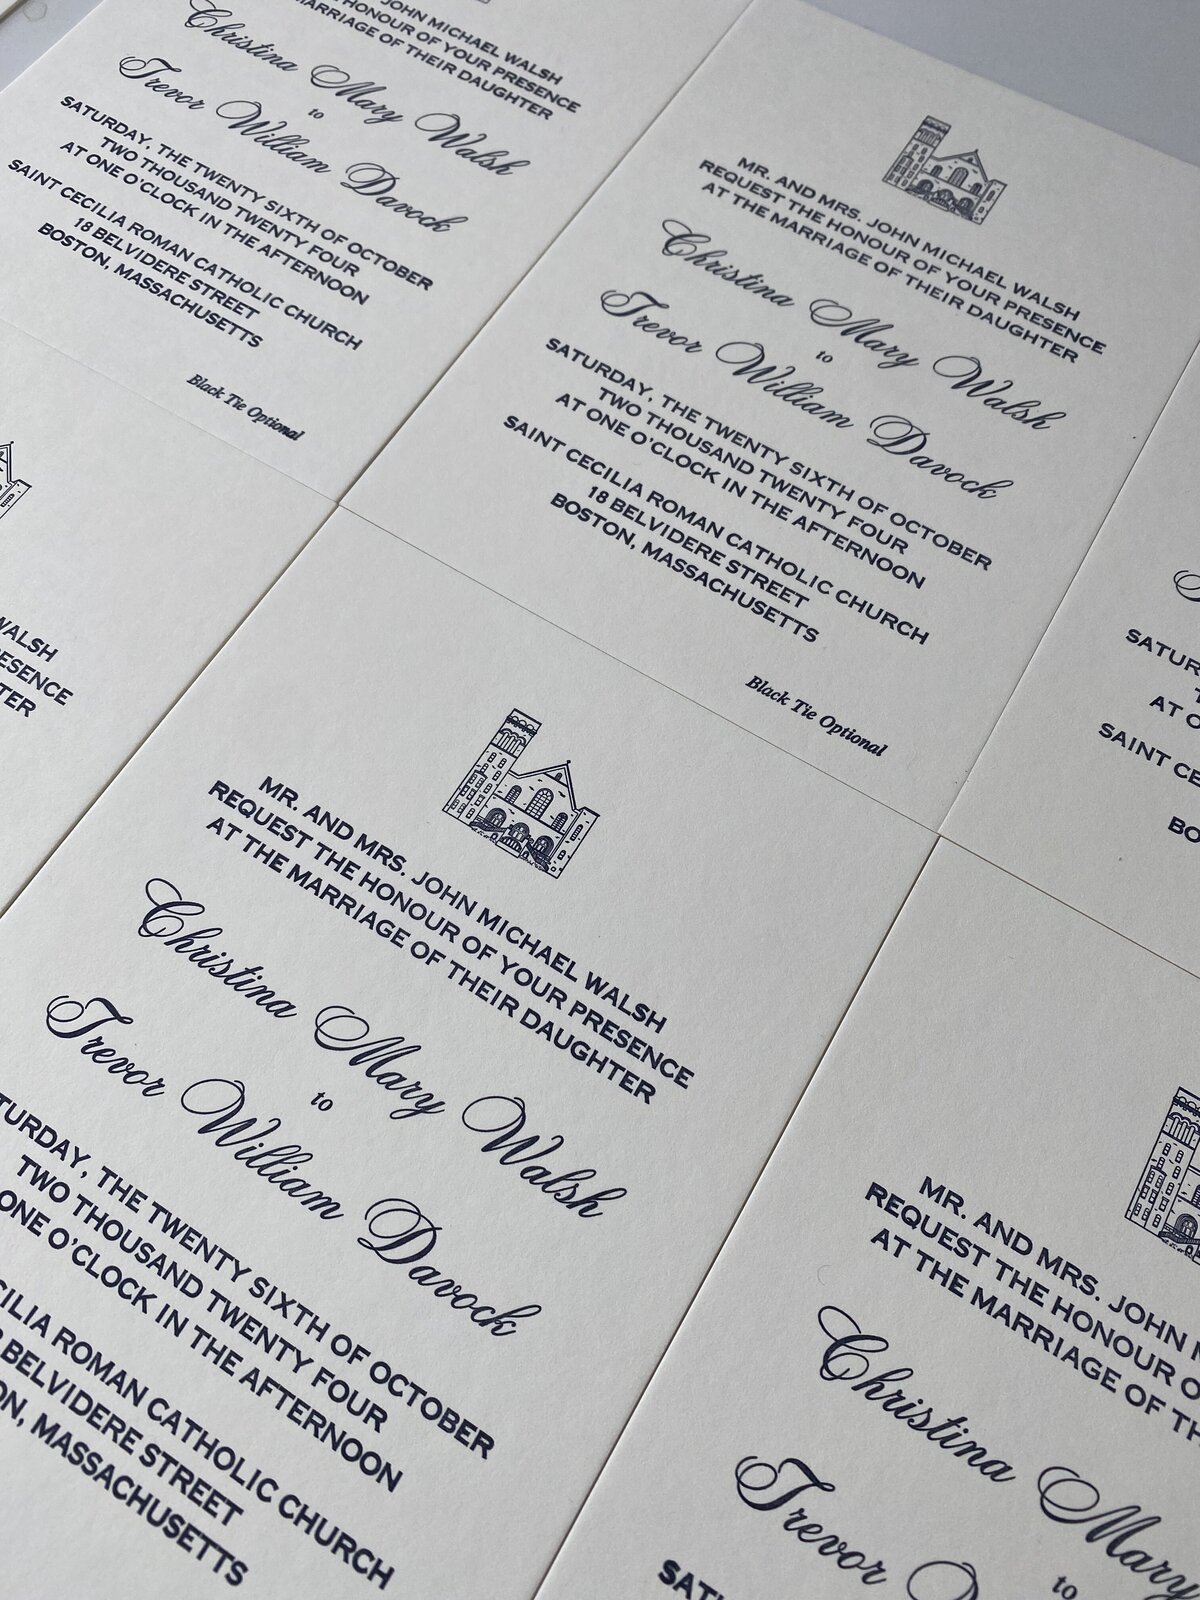 JOHN MICHAEL WALSH
HONOUR OF YOUR PRESENCE
MARRIAGE OF THEIR DAUGHTER
Christina Mary Walsh
to
Trevor William Davock
SATURDAY, THE TWENTY SIXTH OF OCTOBER
TWO THOUSAND TWENTY FOUR
AT ONE O'CLOCK IN THE AFTERNOON
SAINT CECILIA ROMAN CATHOLIC CHURCH
18 BELVIDERE STREET
BOSTON, MASSACHUSETTS
Black Tie Optional
MR. AND MRS. JOHN MICHAEL WALSH
REQUEST THE HONOUR OF YOUR PRESENCE
AT THE MARRIAGE OF THEIR DAUGHTER
Christina Mary Walsh
to
Trevor William Davock
SATURDAY, THE TWENTY SIXTH OF OCTOBER
TWO THOUSAND TWENTY FOUR
AT ONE O'CLOCK IN THE AFTERNOON
SAINT CECILIA ROMAN CATHOLIC CHURCH
18 BELVIDERE STREET
BOSTON, MASSACHUSETTS
Black Tie Optional
SATUR
AT O
SAINT CE
BO
WALSH
ESENCE
TER
MR. AND MRS. JOHN MICHAEL WALSH
REQUEST THE HONOUR OF YOUR PRESENCE
AT THE MARRIAGE OF THEIR DAUGHTER
Christina Mary Walsh
to
Trevor William Davock
TURDAY, THE TWENTY SIXTH OF OCTOBER
TWO THOUSAND TWENTY FOUR
ONE O'CLOCK IN THE AFTERNOON
CILIA ROMAN CATHOLIC CHURCH
BELVIDERE STREET
ON, MASSACHUSETTS
MR. AND MRS. JOHN
REQUEST THE HONOUR O
AT THE MARRIAGE OF TH
Christina Mary
to
Trevor
SATU